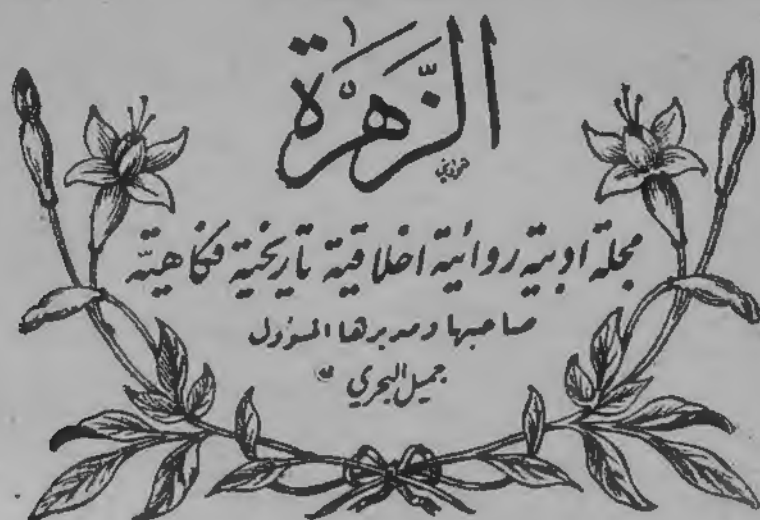 الزَّهَرَة
مجلة ادبية روائية اخلاقية تاريخية فكاهية
صاحبها ومديرها المسؤول
جميل البحري